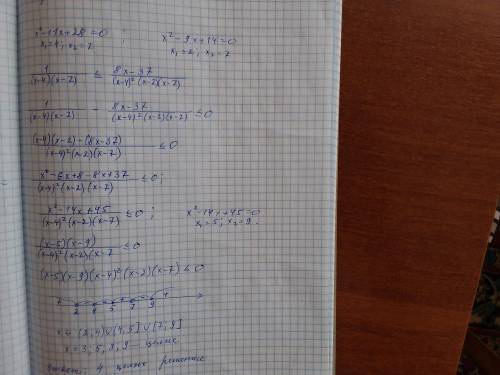 x²-11x+28=0 ; x²-9x+14=0
x₁=4; x₂=7 x₁=2; x₂=7
1/((x-4)(x-7)) ≤ (8x-37)/((x-4)²(x-2)(x-7))
1/((x-4)(x-7)) - (8x-37)/((x-4)²(x-2)(x-7)) ≤0
((x-4)(x-2)-(8x-37))/((x-4)²(x-2)(x-7)) ≤0
(x²-6x+8-8x+37)/((x-4)²(x-2)(x-7)) ≤0;
(x²-14x+45)/((x-4)²(x-2)(x-7)) ≤0 ; x²-14x+45=0
x₁=5; x₂=9.
((x-5)(x-9))/((x-4)²(x-2)(x-7) ≤0
(x-5)(x-9)(x-4)²(x-2)(x-7)≤0
+ - - + - +
2 4 5 7 9
x∈(2;4)∪(4;5]∪(7;9]
x=3,5,8,9 - целые
Ответ: 4 целых решение